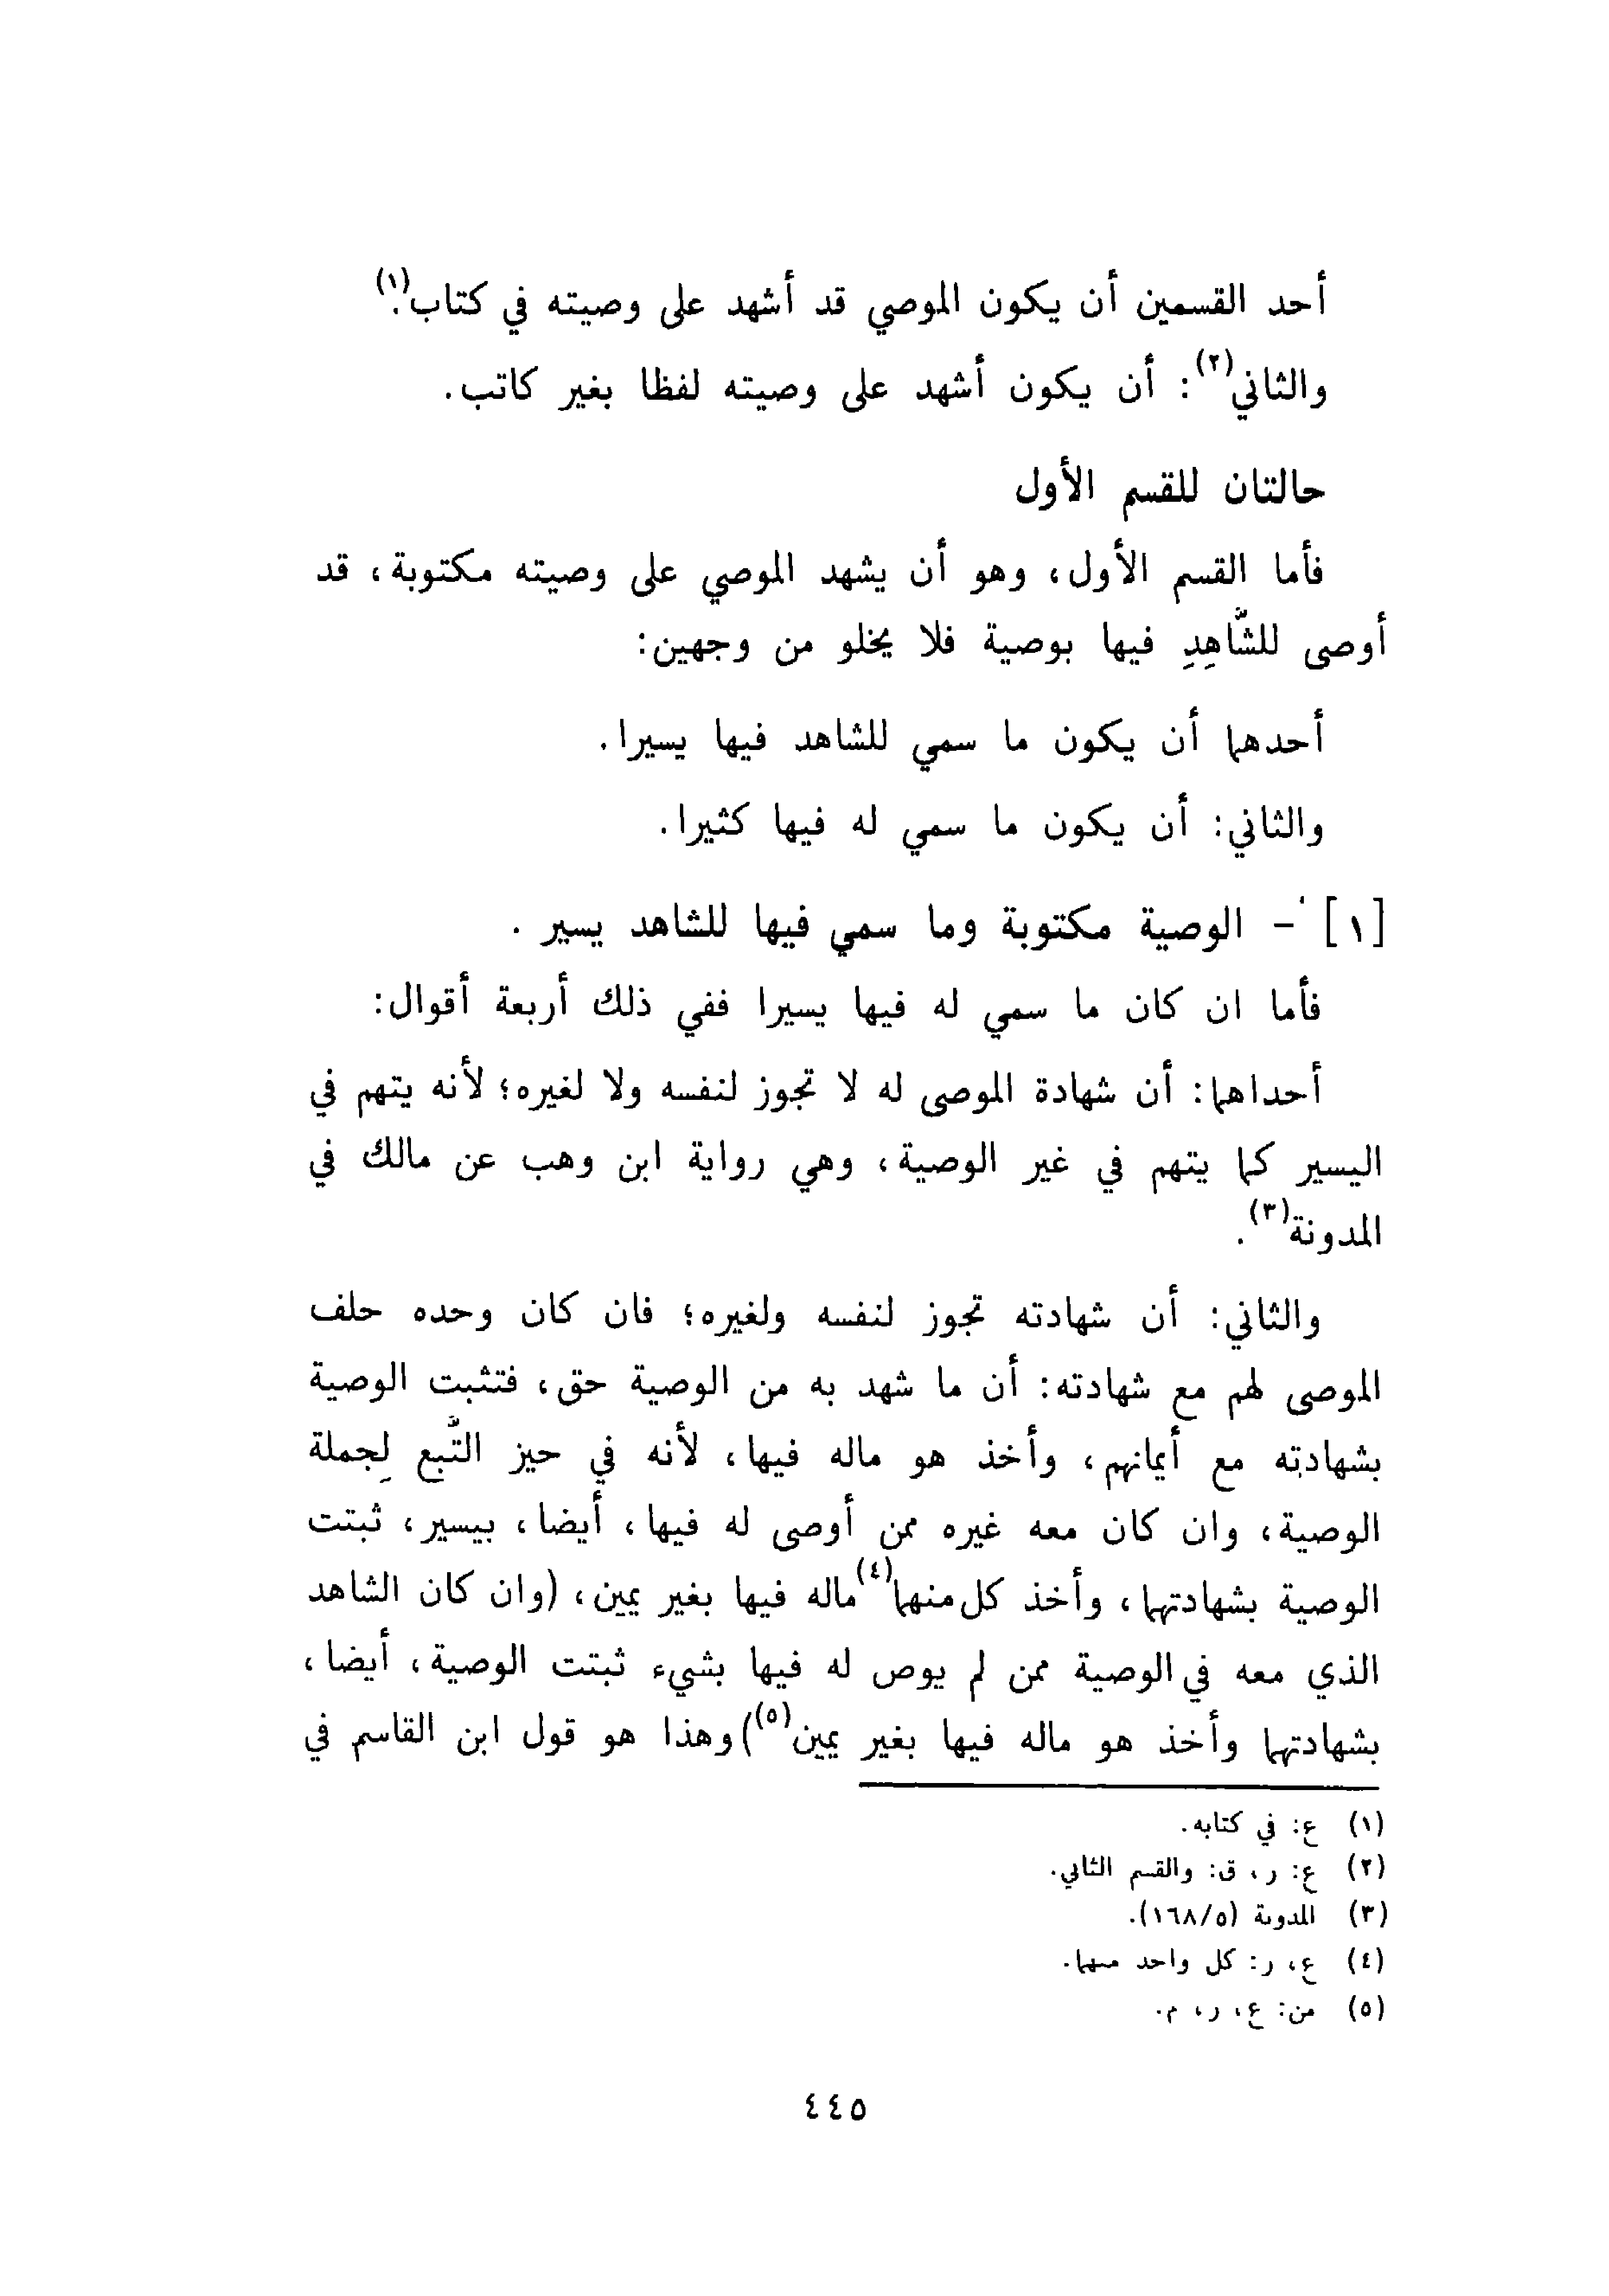 أحد القسمين أن يكون الموصي قد أشهد على وصيته في كتاب(١).
والثاني(٢): أن يكون أشهد على وصيته لفظا بغير كاتب.
حالتان للقسم الأول
فأما القسم الأول، وهو أن يشهد الموصي على وصيته مكتوبة، قد
أوصى للشَّاهِدِ فيها بوصية فلا يخلو من وجهين:
أحدهما أن يكون ما سمي للشاهد فيها يسيرا.
والثاني: أن يكون ما سمي له فيها كثيرا.
[١] - الوصية مكتوبة وما سمي فيها للشاهد يسير .
فأما ان كان ما سمي له فيها يسيرا ففي ذلك أربعة أقوال:
أحداهما: أن شهادة الموصى له لا تجوز لنفسه ولا لغيره؛ لأنه يتهم في
اليسير كما يتهم في غير الوصية، وهي رواية ابن وهب عن مالك في
المدونة(٣).
والثاني: أن شهادته تجوز لنفسه ولغيره؛ فان كان وحده حلف
الموصى لهم مع شهادته: أن ما شهد به من الوصية حق، فتثبت الوصية
بشهادته مع أيمانهم، وأخذ هو ماله فيها، لأنه في حيز التَّبع لِجملة
الوصية، وان كان معه غيره ممن أوصى له فيها، أيضا، بيسير، ثبتت
الوصية بشهادتهما، وأخذ كل منهما(٤) ماله فيها بغير يمين، (وان كان الشاهد
الذي معه في الوصية ممن لم يوص له فيها بشيء ثبتت الوصية، أيضا،
بشهادتهما وأخذ هو ماله فيها بغير يمين(٥)) وهذا هو قول ابن القاسم في
(١) ع: في كتابه.
(٢) ع: ر، ق: والقسم الثاني.
(٣) المدونة (٥/١٦٨).
(٤) ع، ر: كل واحد منهما.
(٥) من: ع، ر، م.
٤٤٥